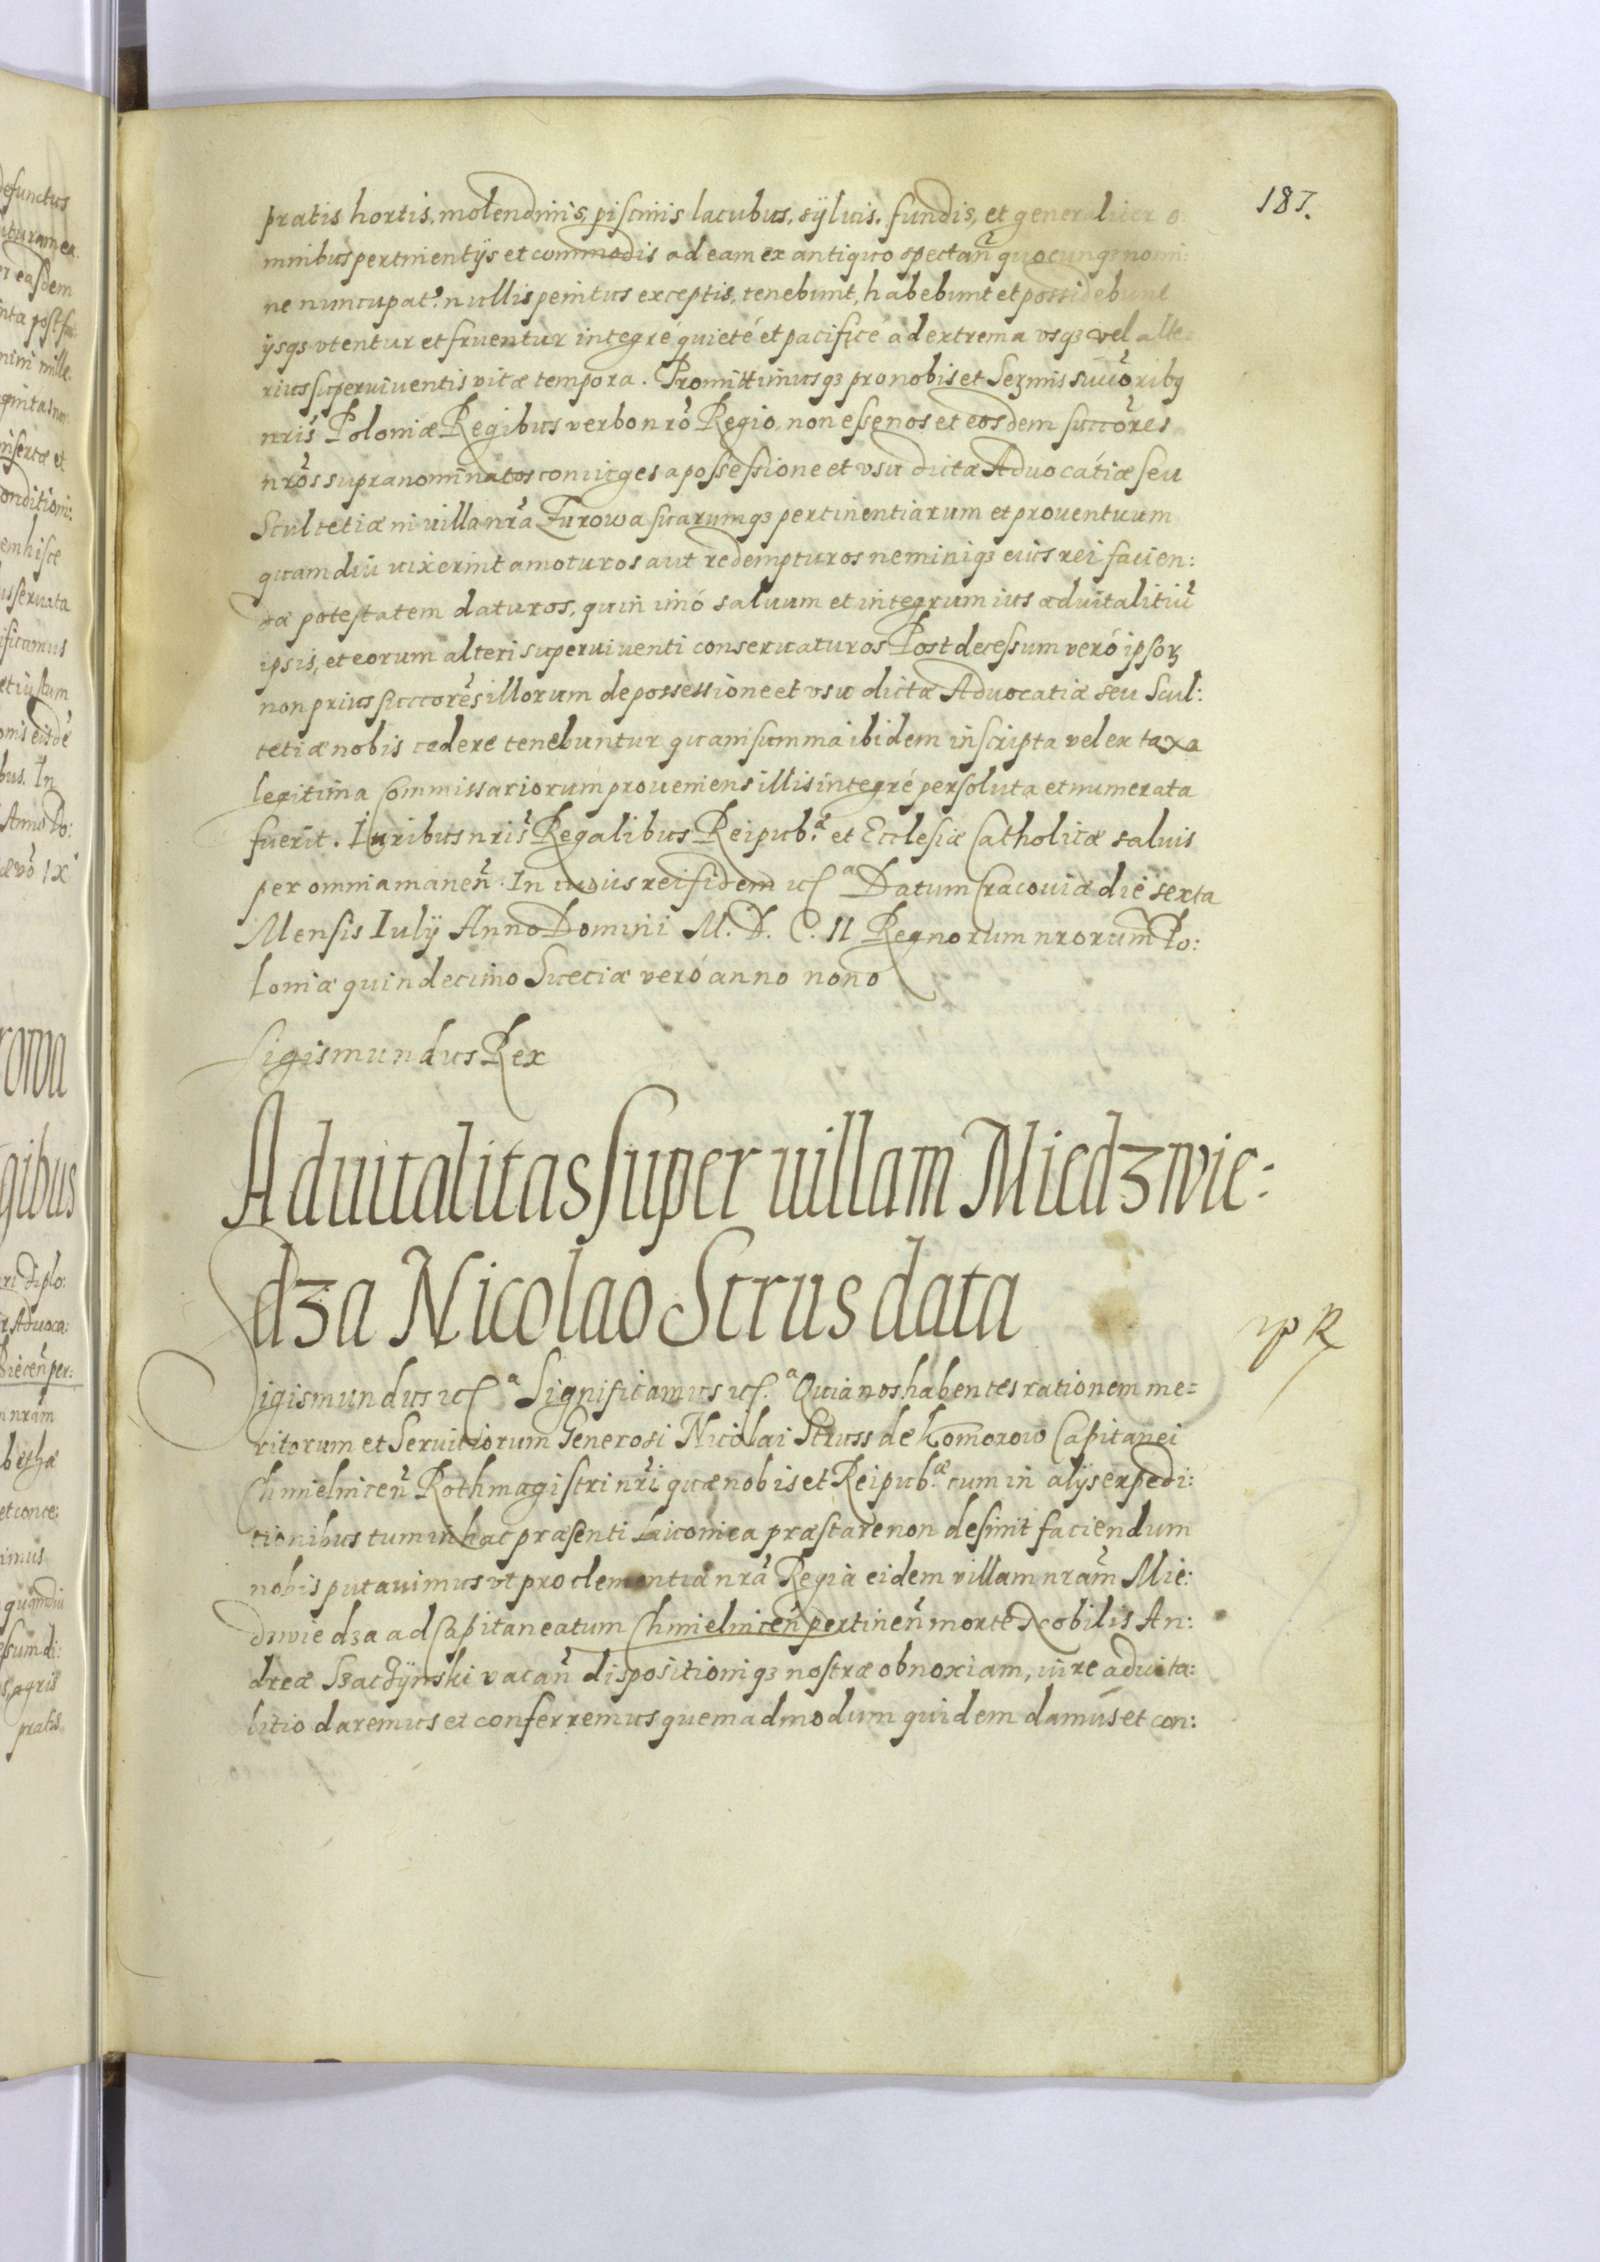 187.
pratis hortis, molendinis, piscinis lacubus, sÿluis, fundis, et generaliter o:
mnibus pertinentijs et commodis ad eam ex antiquo spectan̄ quocunq3 nomi:
ne nuncupat? nullis penitus exceptis, tenebunt, habebunt et possidebunt
ijsqs vtentur et fruentur integré quieté et pacificé ad extrema vsq3 vel alte:
rius superviventis vitæ tempora. Promittimusq3 pro nobis et Sezmis succōribq
nr̄is Poloniæ Regibus verbo nrō Regio non esse nos et eosdem succōres
nr̄os supranominatos coniuges a possessione et vsu dictæ Aduocátiæ seu
Scultetiæ in villa nr̄a Zurowa suarumq3 pertinentiarum et prouentuum
quamdiu uixerint amoturos aut redempturos neminiq3 eius rei facien:
dæ potestatem daturos, quin imó saluum et integrum ius aduitalitiū
ipsis, et eorum alteri superuiuenti conseruaturos Post decessum veró ipsoꝝ
non prius succorēs illorum de possessione et vsu dictæ Aduocatiæ seu Scul:
tetiæ nobis cedere tenebuntur quam summa ibidem inscripta vel ex taxa
legitima Commissariorum proueniens illis integré persoluta et numerata
fuerit. Iuribus nr̄is Regalibus Reipub.æ et Ecclesiæ Catholicæ saluis
per omnia manen̄. In cuius rei fidem ꝛc̄ a Datum Cracouiæ die sexta
Mensis Iulÿ Anno Domini M. D. C. II Regnorum nrorum Po:
loniæ quindecimo Sueciæ veró anno nono
Sigismundus Rex
Aduitalitas super uillam Miedzwie:
dza Nicolao Strus data
Sigismundus ꝛc̄ a Significamus ꝛc̄. a Quia nos habentes rationem me=
ritorum et Seruitiorum Generosi Nicolai Struss de Komorow Capitanei
Chmielnicen̄ Rothmagistri nr̄i quæ nobis et Reipub.æ cum in alÿs expedi:
tionibus tum in hac præsenti Liuonica præstare non desinit faciendum
nobis putauimus vt pro clementia nr̄a Regia eidem villam nram̄ Mie:
dzwiedza ad Capitaneatum Chmielnicen̄ pertinen̄ morte Nobilis An:
dreæ Szaczÿnski vacan̄ dispositioniq3 nostræ obnoxiam, iure aduita:
litio daremus et conferremus quemadmodum quidem damus et con: